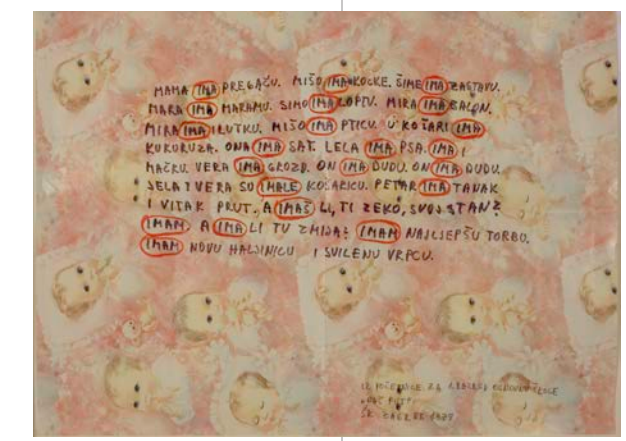 MAMA IMA PREGAČU. MIŠO IMA KOCKE. ŠIME IMA ZASTAVU.
MARA IMA MARAMU. SIMO IMA LOPTU. MIRA IMA BALON.
MIRA IMA LUTKU. MIŠO IMA PTICU. U KOŠARI IMA
KUKURUZA. ONA IMA SAT. LELA IMA PSA. IMA I
MAČKU. VERA IMA GROZD. ON IMA DUDU. ON IMA DUDU.
JELA I VERA SU IMALE KOŠARICU. PETAR IMA TANAK
I VITAK PRUT. A IMAŠ LI, TI ZEKO, SVOJ STAN?
IMAM. A IMA LI TU ZMIJA? IMAM NAJLJEPŠU TORBU.
IMAM NOVU HALJINICU I SVILENU VRPCU.
IZ POČETNICE ZA I RAZRED OSNOVNE ŠKOLE
ŠK. ZAGREB